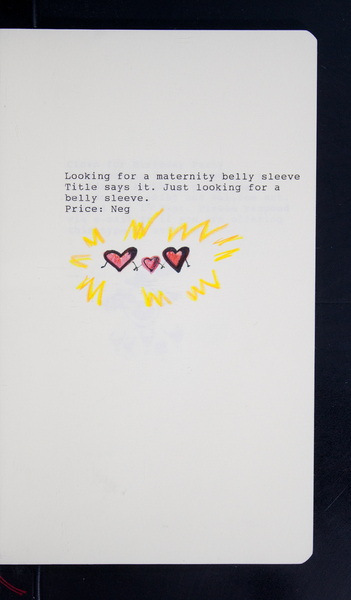 Looking for a maternity belly sleeve
Title says it. Just looking for a
belly sleeve.
Price: Neg